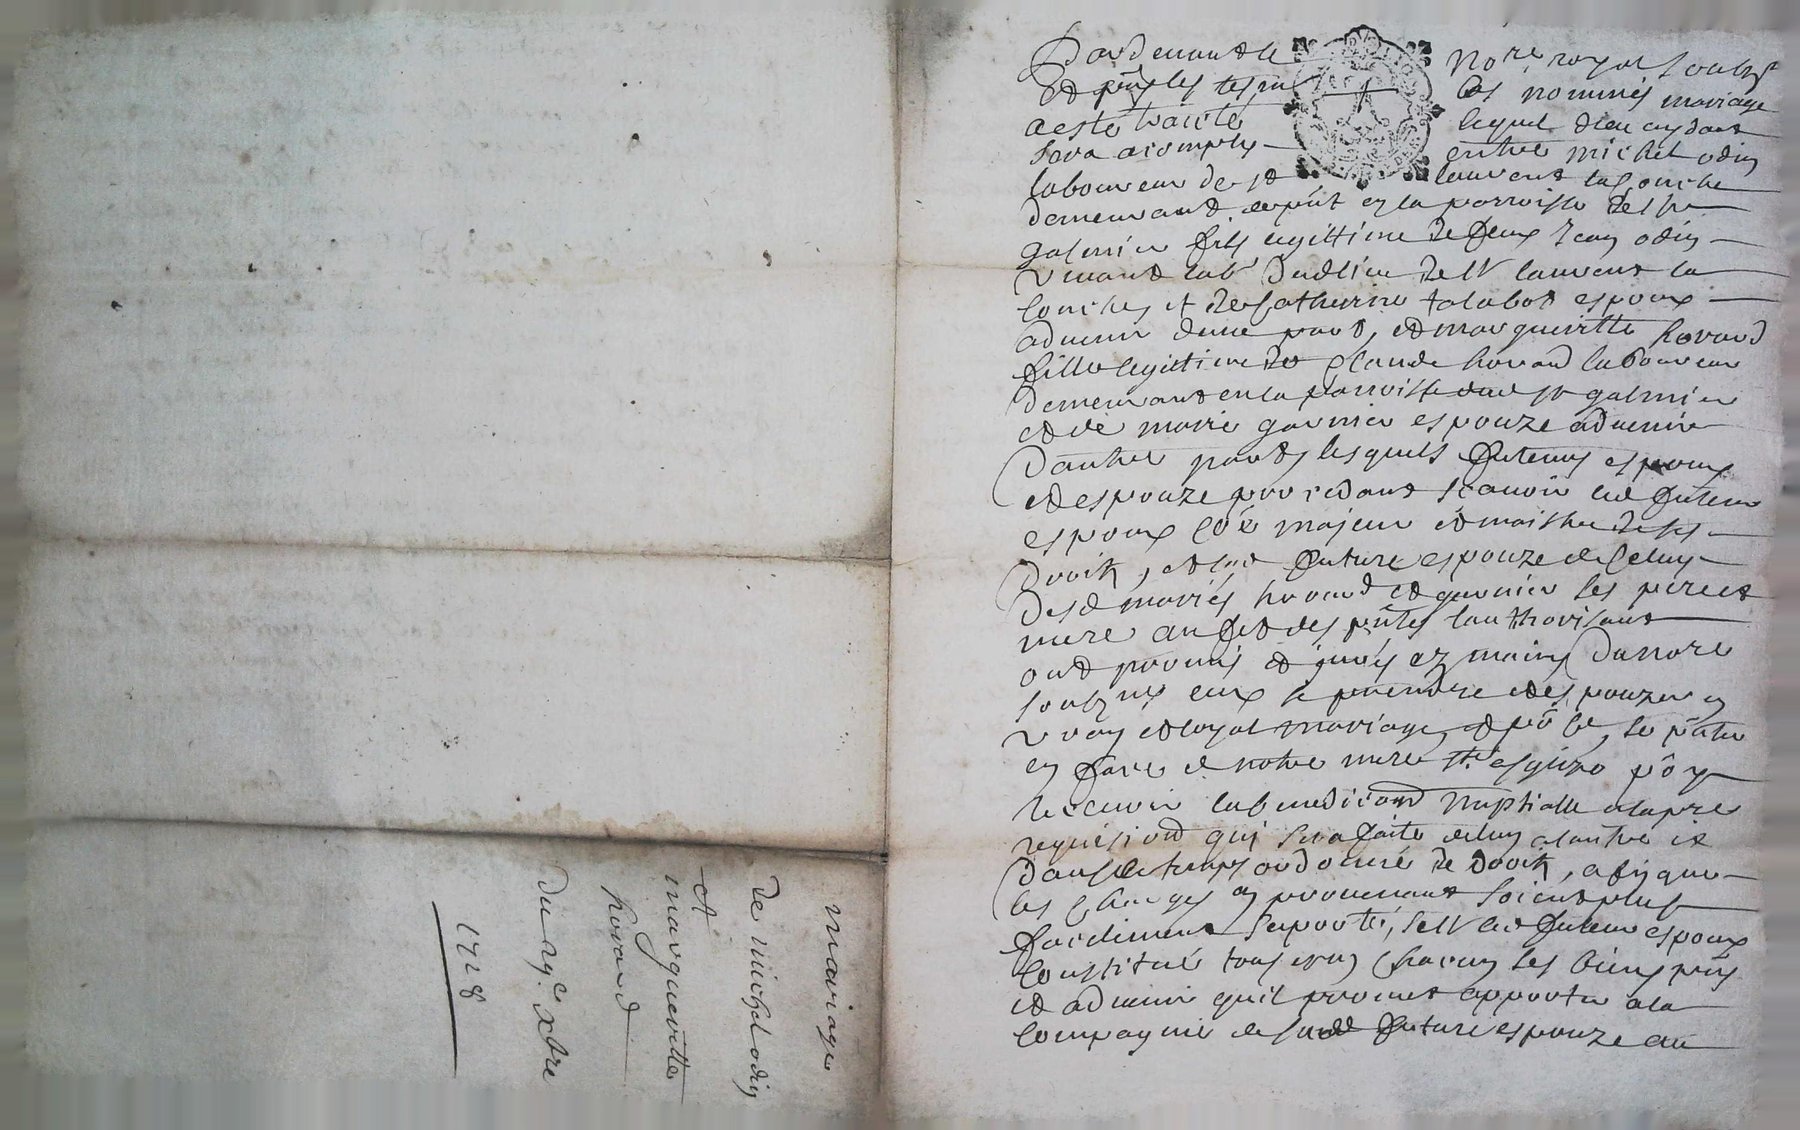 Pardevant le Nore royal soubzne
Et pnts les tesm bas nommés mariage
a esté traicté lequel dieu aydant
sera acomply entre michel odin
laboureur de st laurent la conche
demeurant depnt en la parroisse de st
galmier fils legittime de feux Jean odin
vivant labr dudt lieu de st laurent la
conche, et de catherine talabot espoux
advenir dune part, et margueritte horard
fille legittime de claude horard laboureur
demeurant en la parroisse dud st galmier
et de marie garnier espouze advenir
dautre part, lesquels futeurs espoux
et espouze procedant scavoir led futeur
espoux coe majeur et maistre de ses
droits, et lad future espouze de celuy
desd mariés horard et garnier ses pere et
mere au fet des pntes lauthorisant
ont promis et jurés ez mains du nore
soubzne eux se prendre et espouzer en
vray et loyal mariage, et po ce, se pnter
en face de notre mere ste esglize po y
recevoir la benediction nuptialle a la pre
requision qui sera faite de lun a lautre et
dans le temps ordonné de droit, afin que
les charges en provenant soient plus
facilement suporté, sest led futeur espoux
constitué tous et un chacun ses biens pnts
et advenir quil promet apporter a la
compagnie de sad future espouze au
mariage
de michel odin
et
margueritte
horard
du 29e xbre
1728